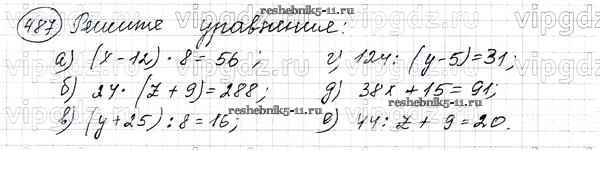 reshebnik5-11.ru
487 Решите уравнения:
а) (x-12) · 8 = 56; г) 124 : (y-5) = 31;
reshebnik5-11.ru
б) 24 · (z + 9) = 288; д) 38x + 15 = 91;
в) (y + 25) : 8 = 16; е) 44 : z + 9 = 20.
reshebnik5-11.ru
vipgdz.ru vipgdz.ru vipgdz.ru vipgdz.ru